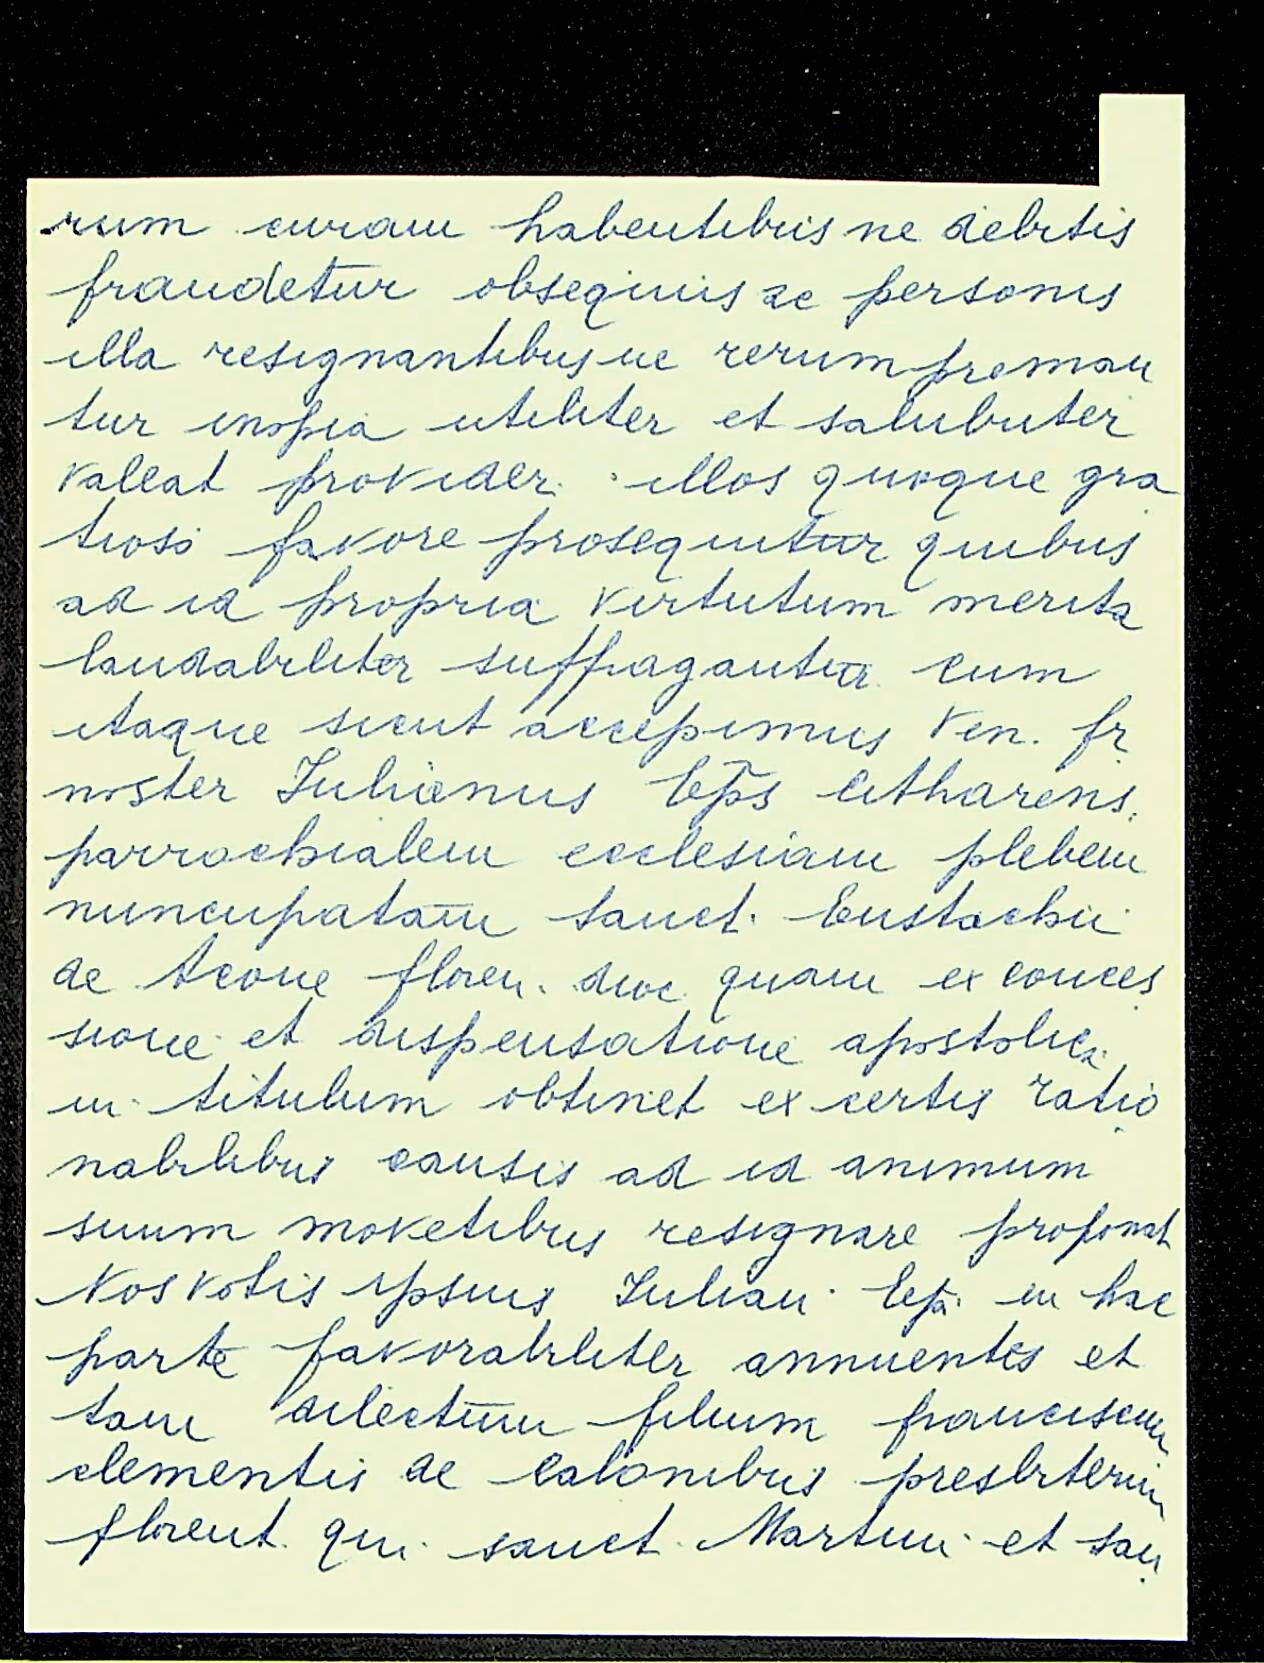 rum curam habentibus ne debitis
fraudetur obsequiis ac personis
illa resignantibus ne rerum preman
tur inopia utiliter et salubriter
valeat provider. illos quoque gra
tioso favore prosequitur quibus
ad id propria virtutum merita
laudabiliter suffragantur cum
itaque sicut accepimus Ven. fr
noster Iulianus Eps Citharens.
parrochialem ecclesiam plebem
nuncupatam sanct. Eustachii
de Acone floren. dioc. quam ex conces
sione et dispensatione apostolica
in titulum obtinet ex certis ratio
nabilibus causis ad id animum
suum movetibus resignare proponat
Nos votis ipsius Iulian. Epi. in hac
parte favorabiliter annuentes et
tam dilectum filium franciscum
clementis de Catonibus presbiterum
florent. qui sanct. Martini et san